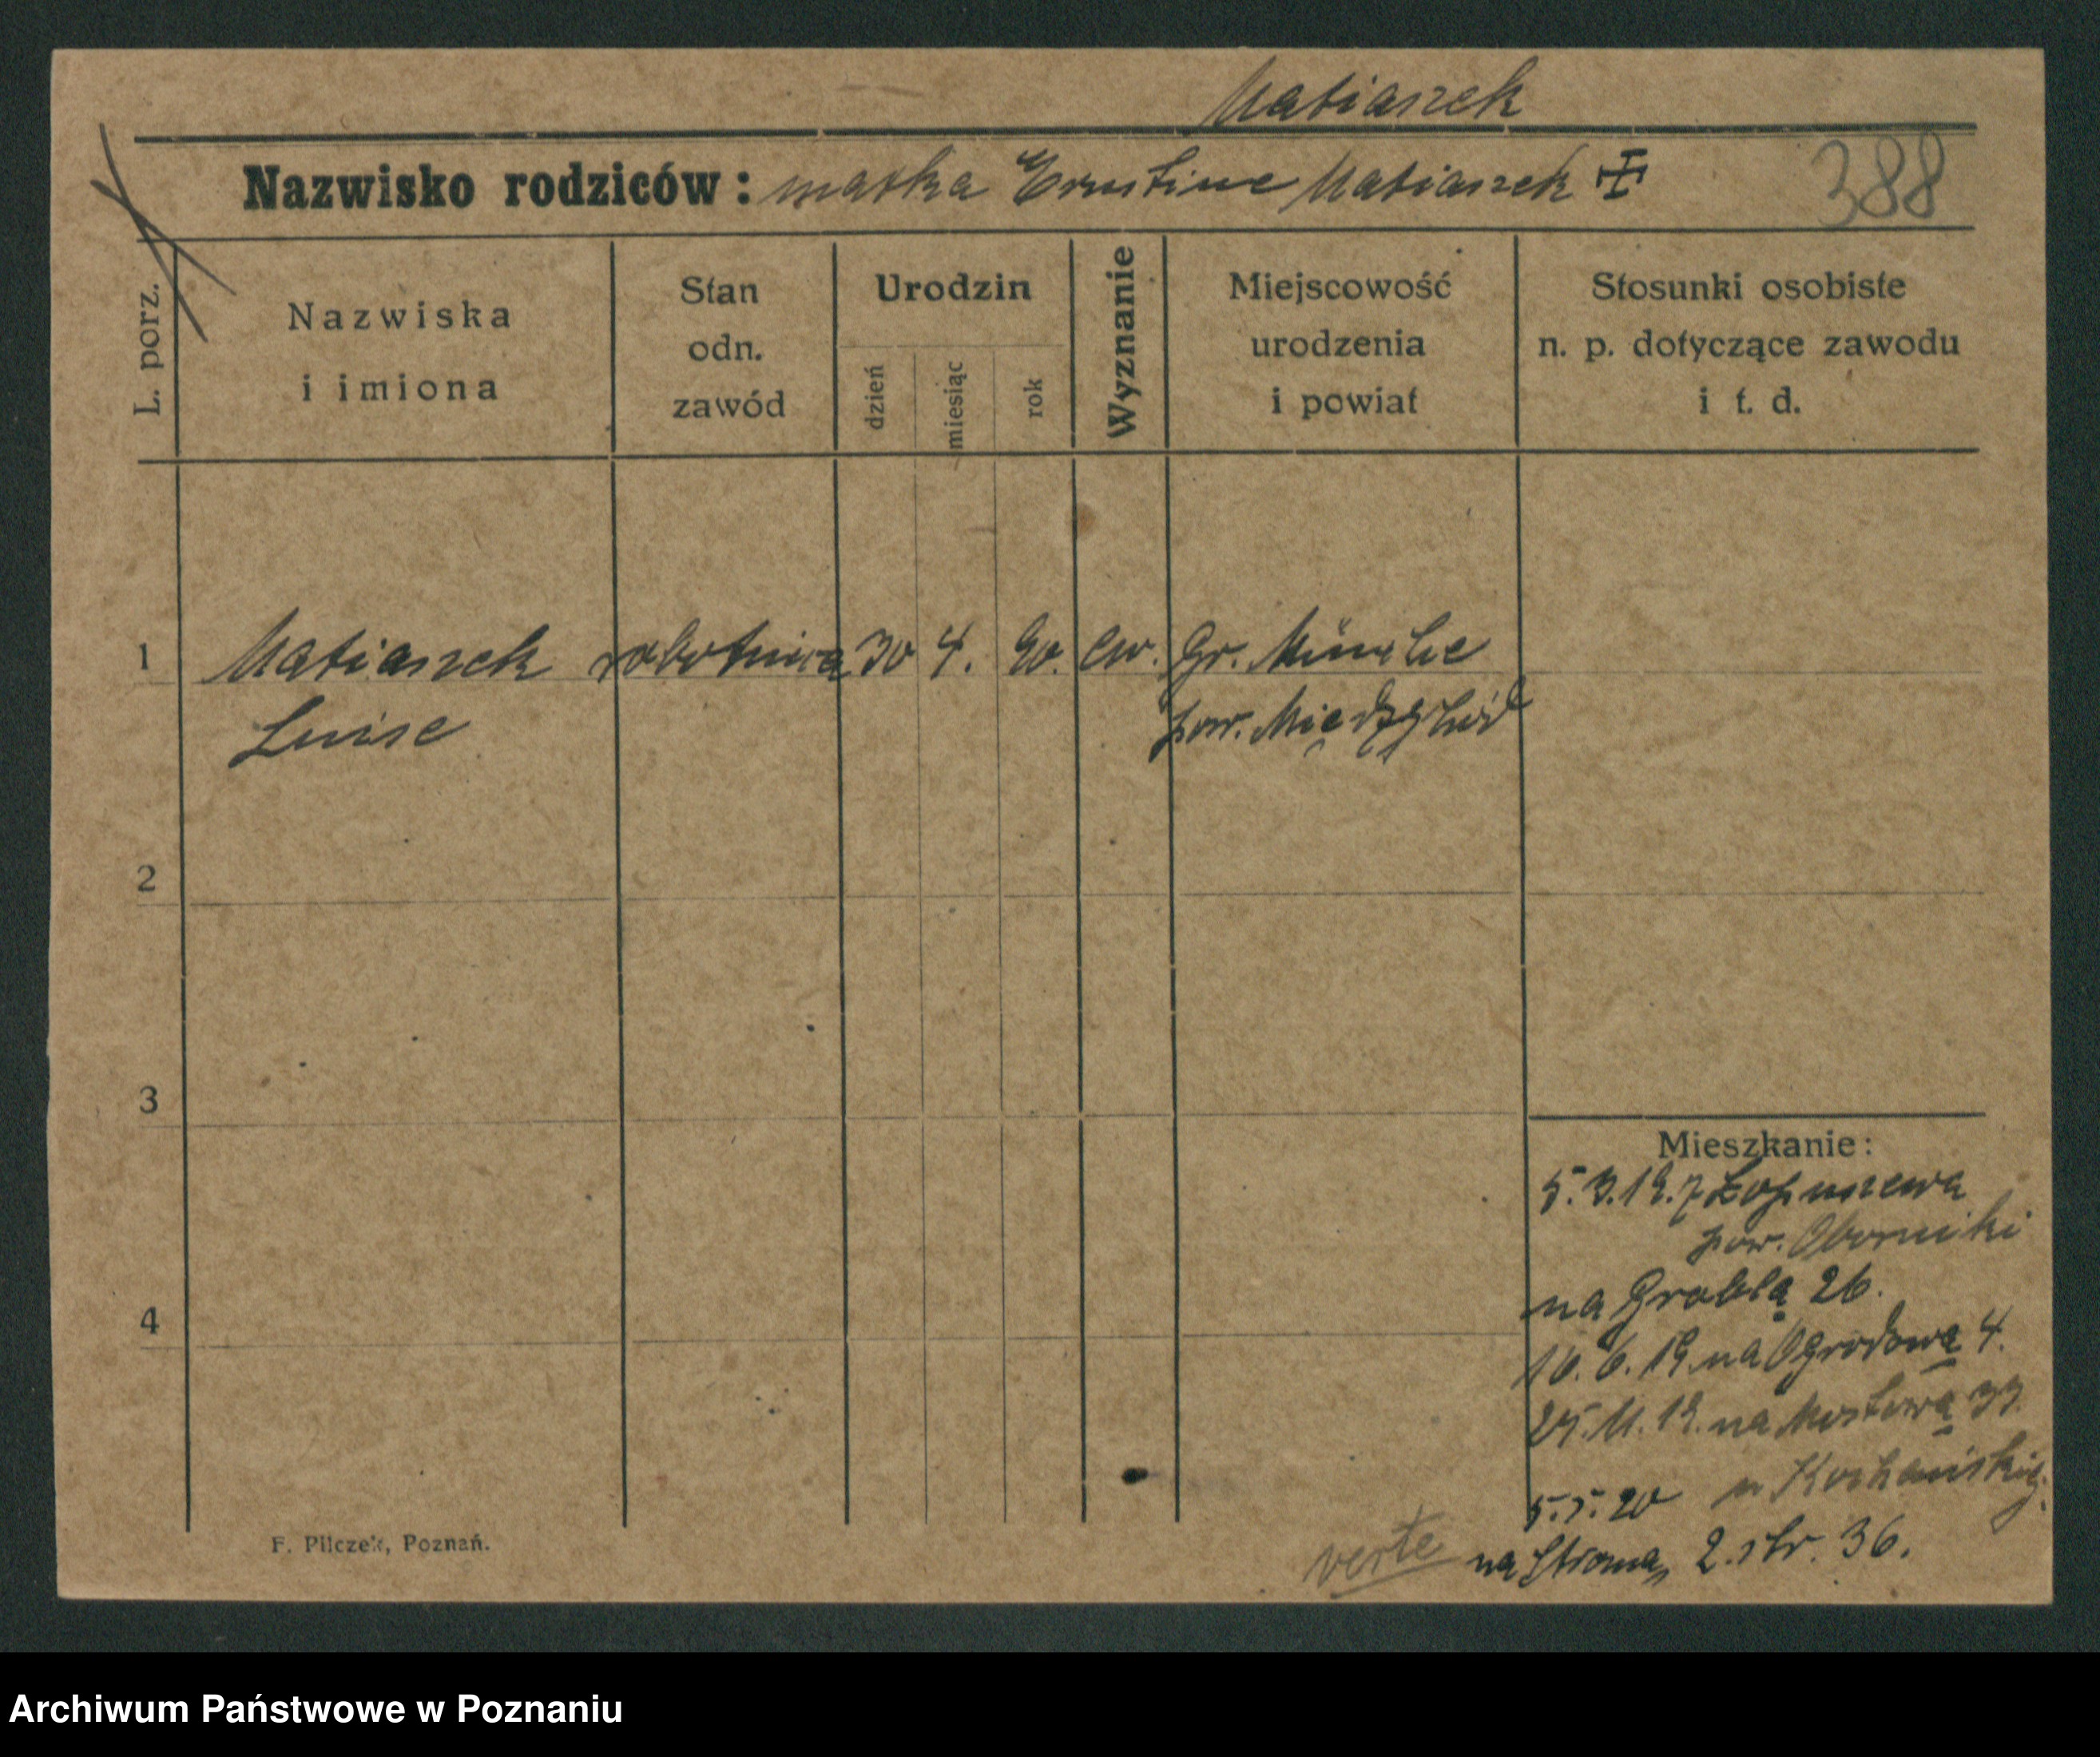 Matiaszek
Nazwisko rodziców: matka Ernstine Matiaszek
388
L. porz.
Nazwiska
i imiona
Stan
odn.
zawód
Urodzin
dzień
miesiąc
rok
Wyznanie
Miejscowość
urodzenia
i powiat
Stosunki osobiste
n. p. dotyczące zawodu
i t. d.
1
Matiaszek robotnica 30 4. 90. ew. Gr. Münche
Luise pow. Międzychód
2
3
4
Mieszkanie:
5.3.19. z
pow. Oborniki
na Groblą 26.
16.6.19 na Ogrodową 4.
25.11.19. na Mostową 33.
u
5.5.20
na Stromą 2. str. 36.
verte
F. Pilczek, Poznań.
Archiwum Państwowe w Poznaniu